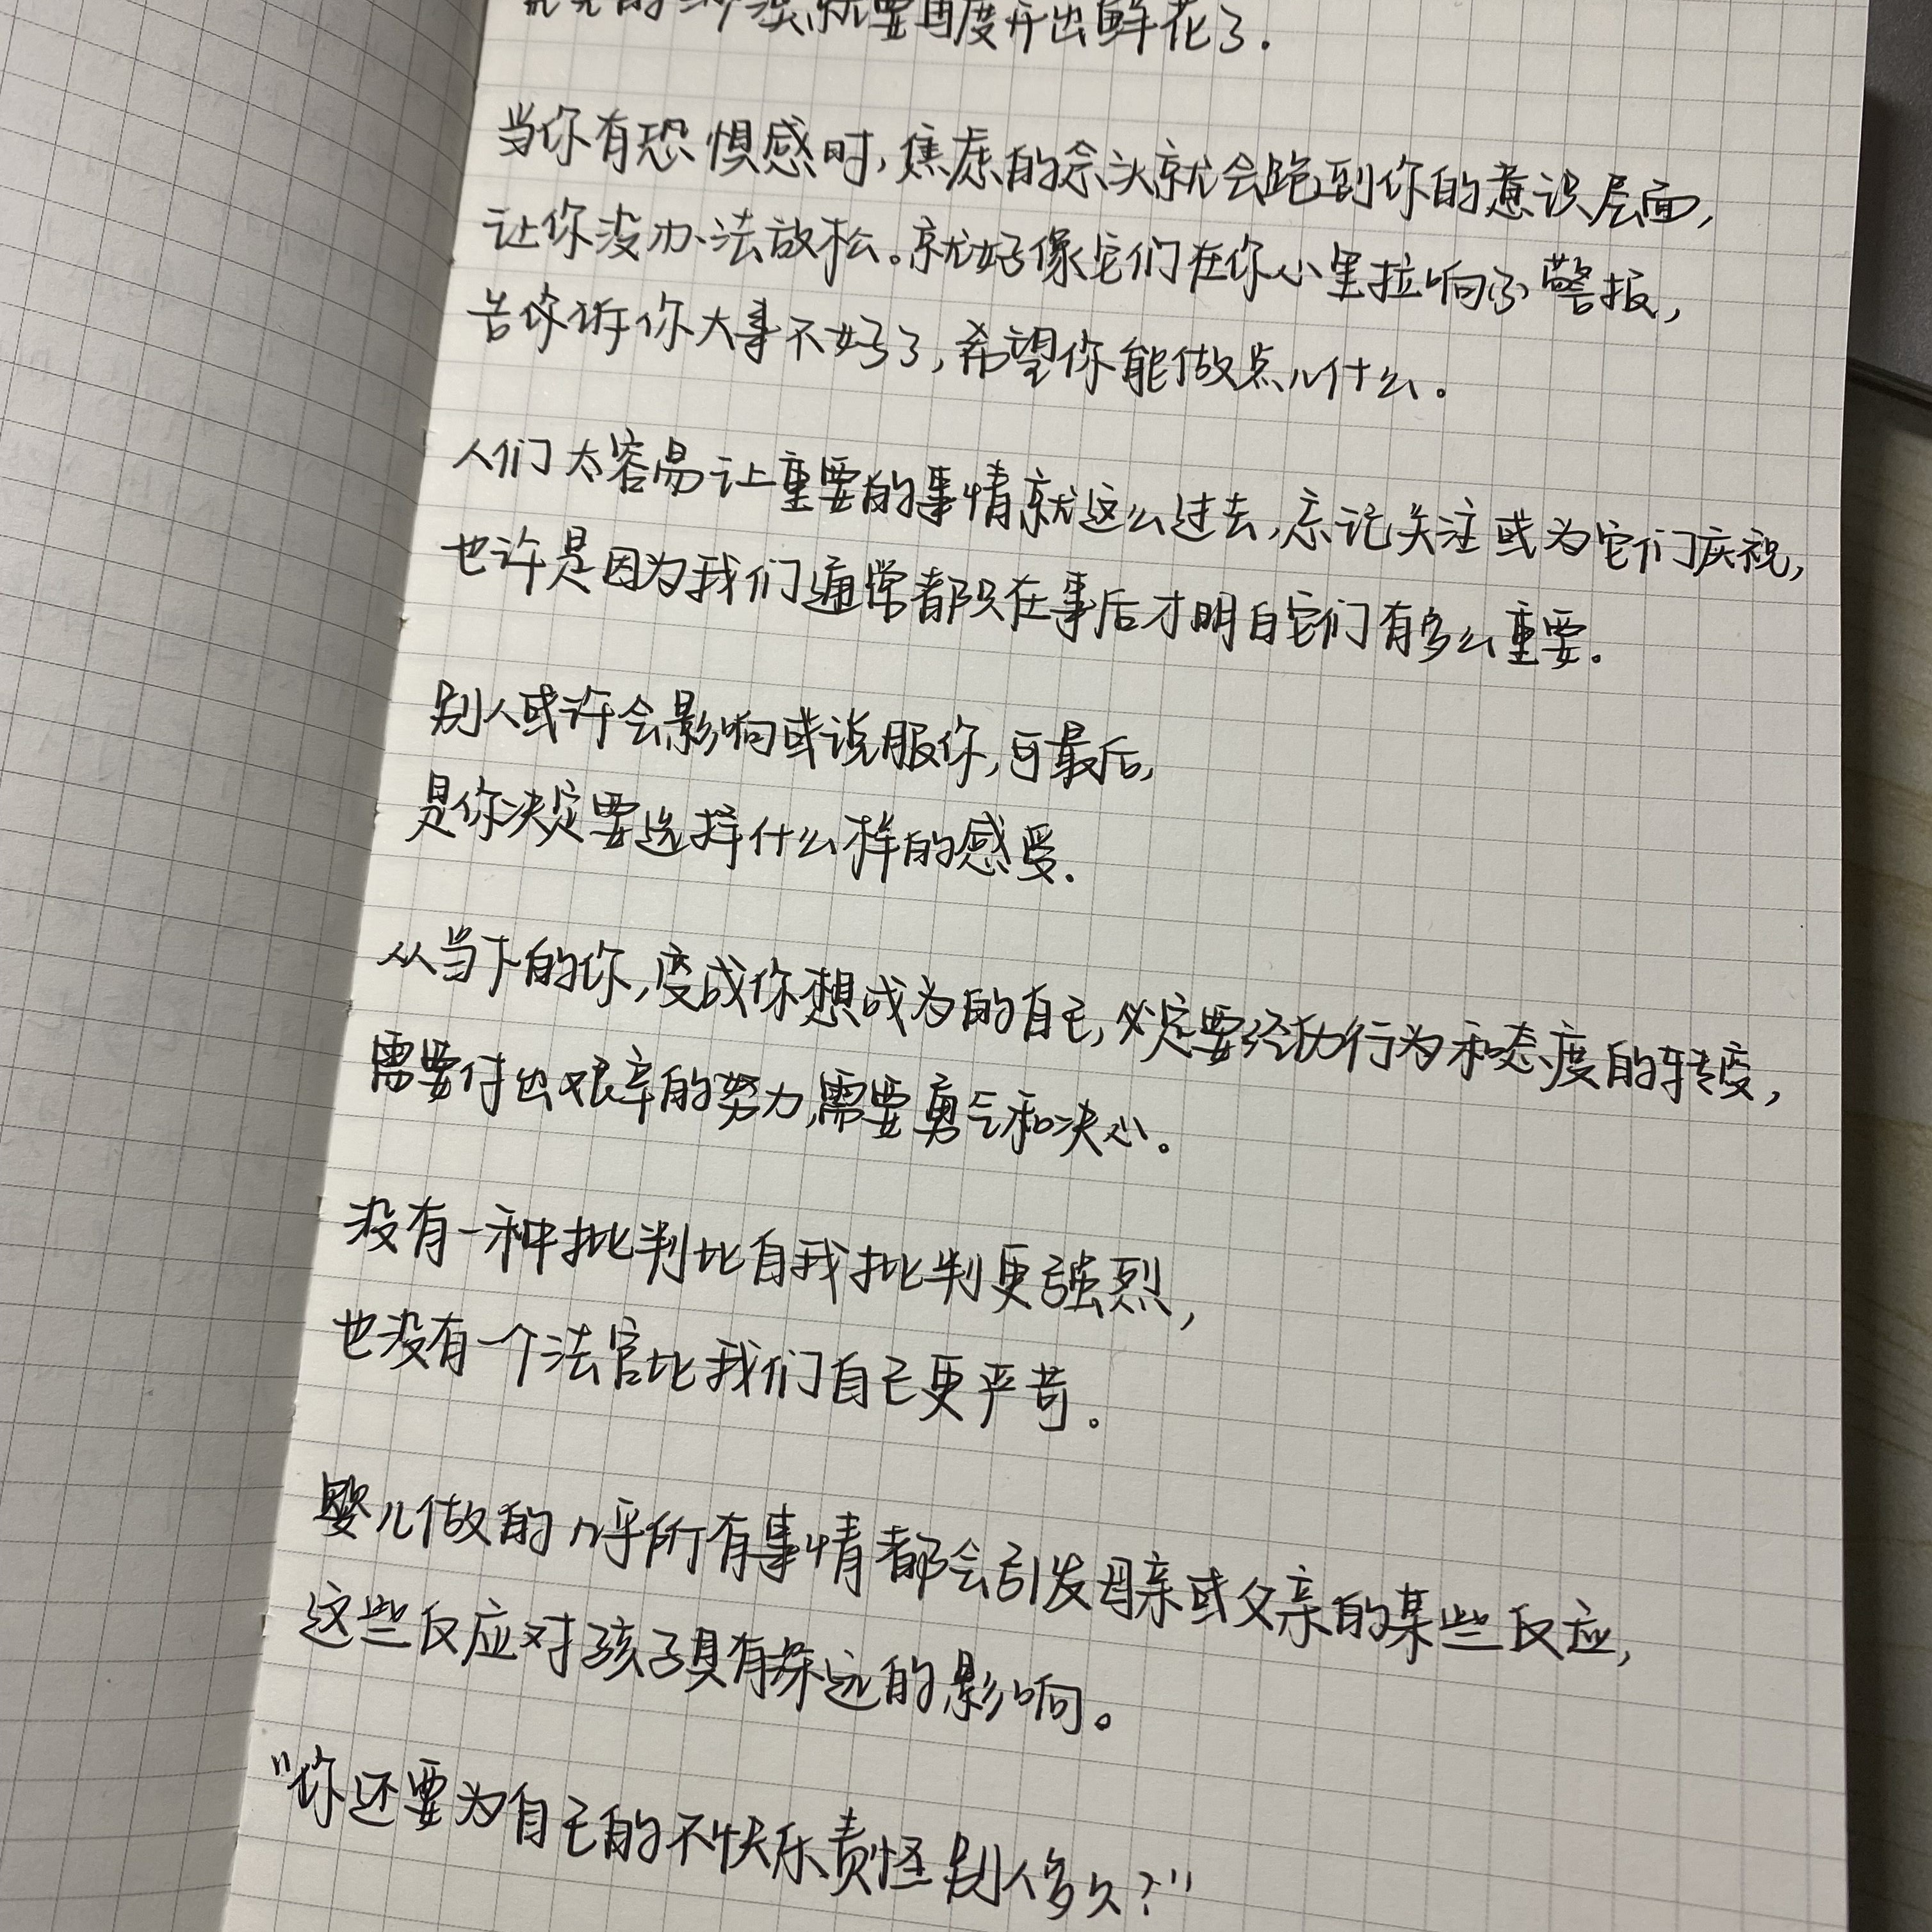 就要再度开出鲜花了.
当你有恐惧感时,焦虑的念头就会跑到你的意识层面,
让你没办法放松。就好像它们在你心里拉响了警报,
告诉你大事不好了,希望你能做点儿什么。
人们太容易让重要的事情就这么过去,忘记关注或为它们庆祝,
也许是因为我们通常都只在事后才明白它们有多么重要.
别人或许会影响或说服你,可最后,
是你决定要选择什么样的感受.
从当下的你,变成你想成为的自己,必定要经历行为和态度的转变,
需要付出艰辛的努力,需要勇气和决心。
没有一种批判比自我批判更强烈,
也没有一个法官比我们自己更严苛。
婴儿做的几乎所有事情都会引发母亲或父亲的某些反应,
这些反应对孩子具有深远的影响。
"你还要为自己的不快乐责怪别人多久?"